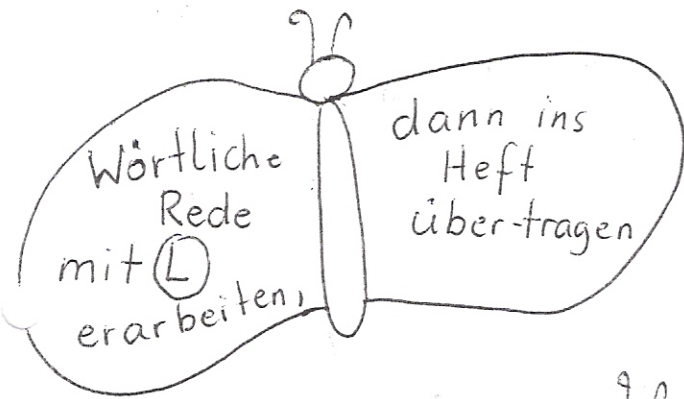 Wörtliche
Rede
mit Ⓛ
erarbeiten,
dann ins
Heft
über-tragen